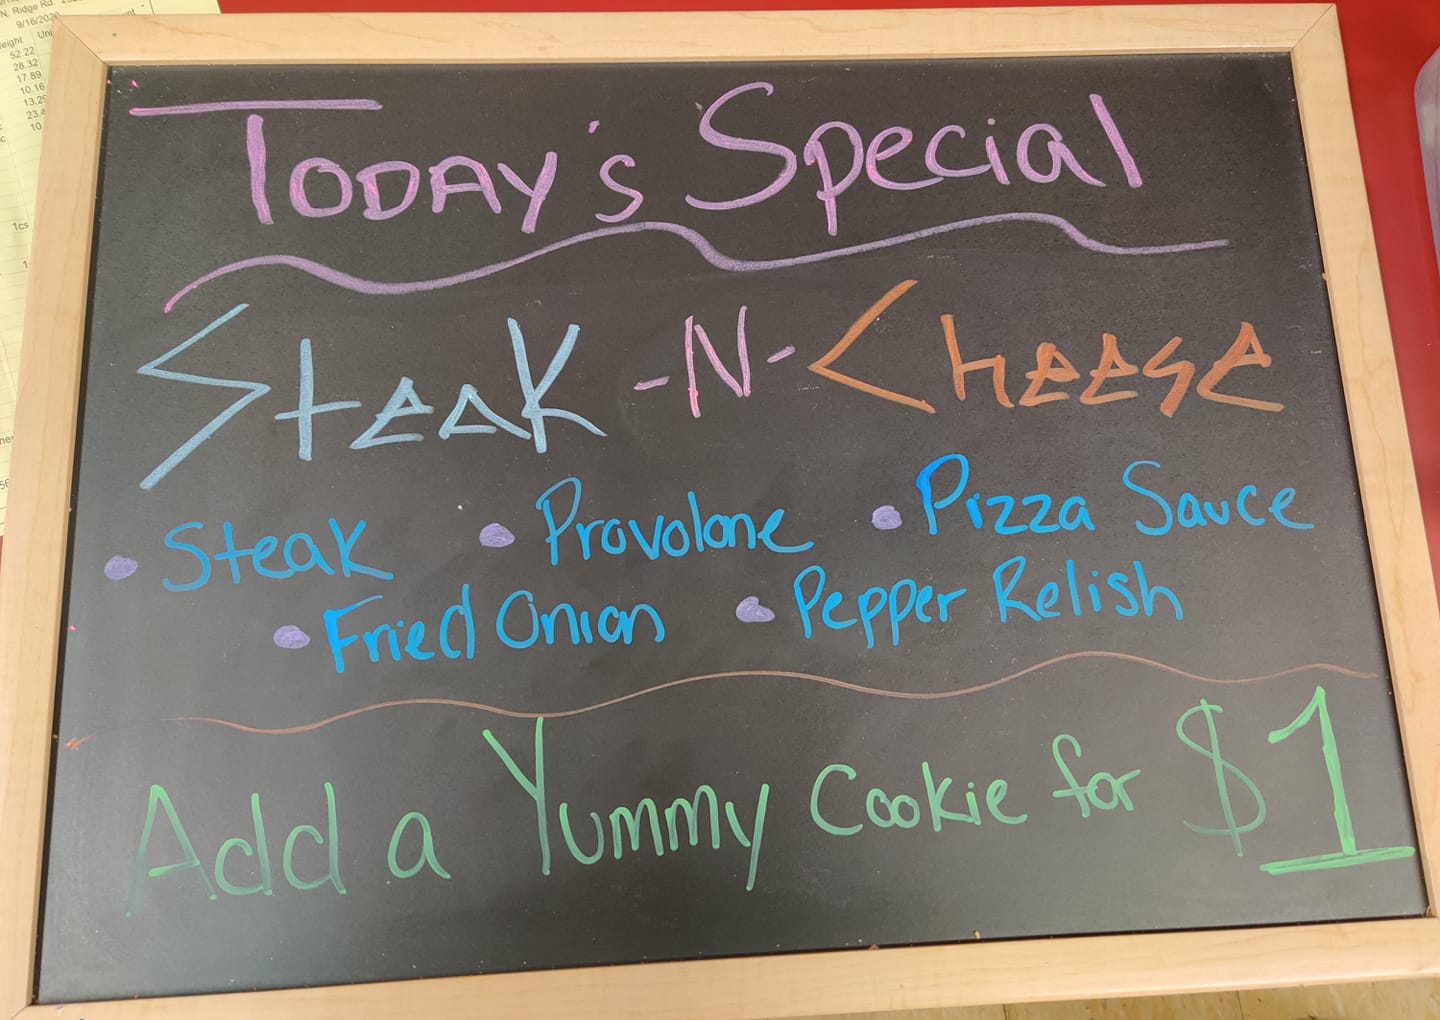 N. Ridge Rd.
9/16/202
52.22
28.32
17.89
10.16
23.4
10
1cs
Today's Special
Steak -N- Cheese
• Steak • Provolone • Pizza Sauce
• Fried Onion • Pepper Relish
Add a Yummy Cookie for $1